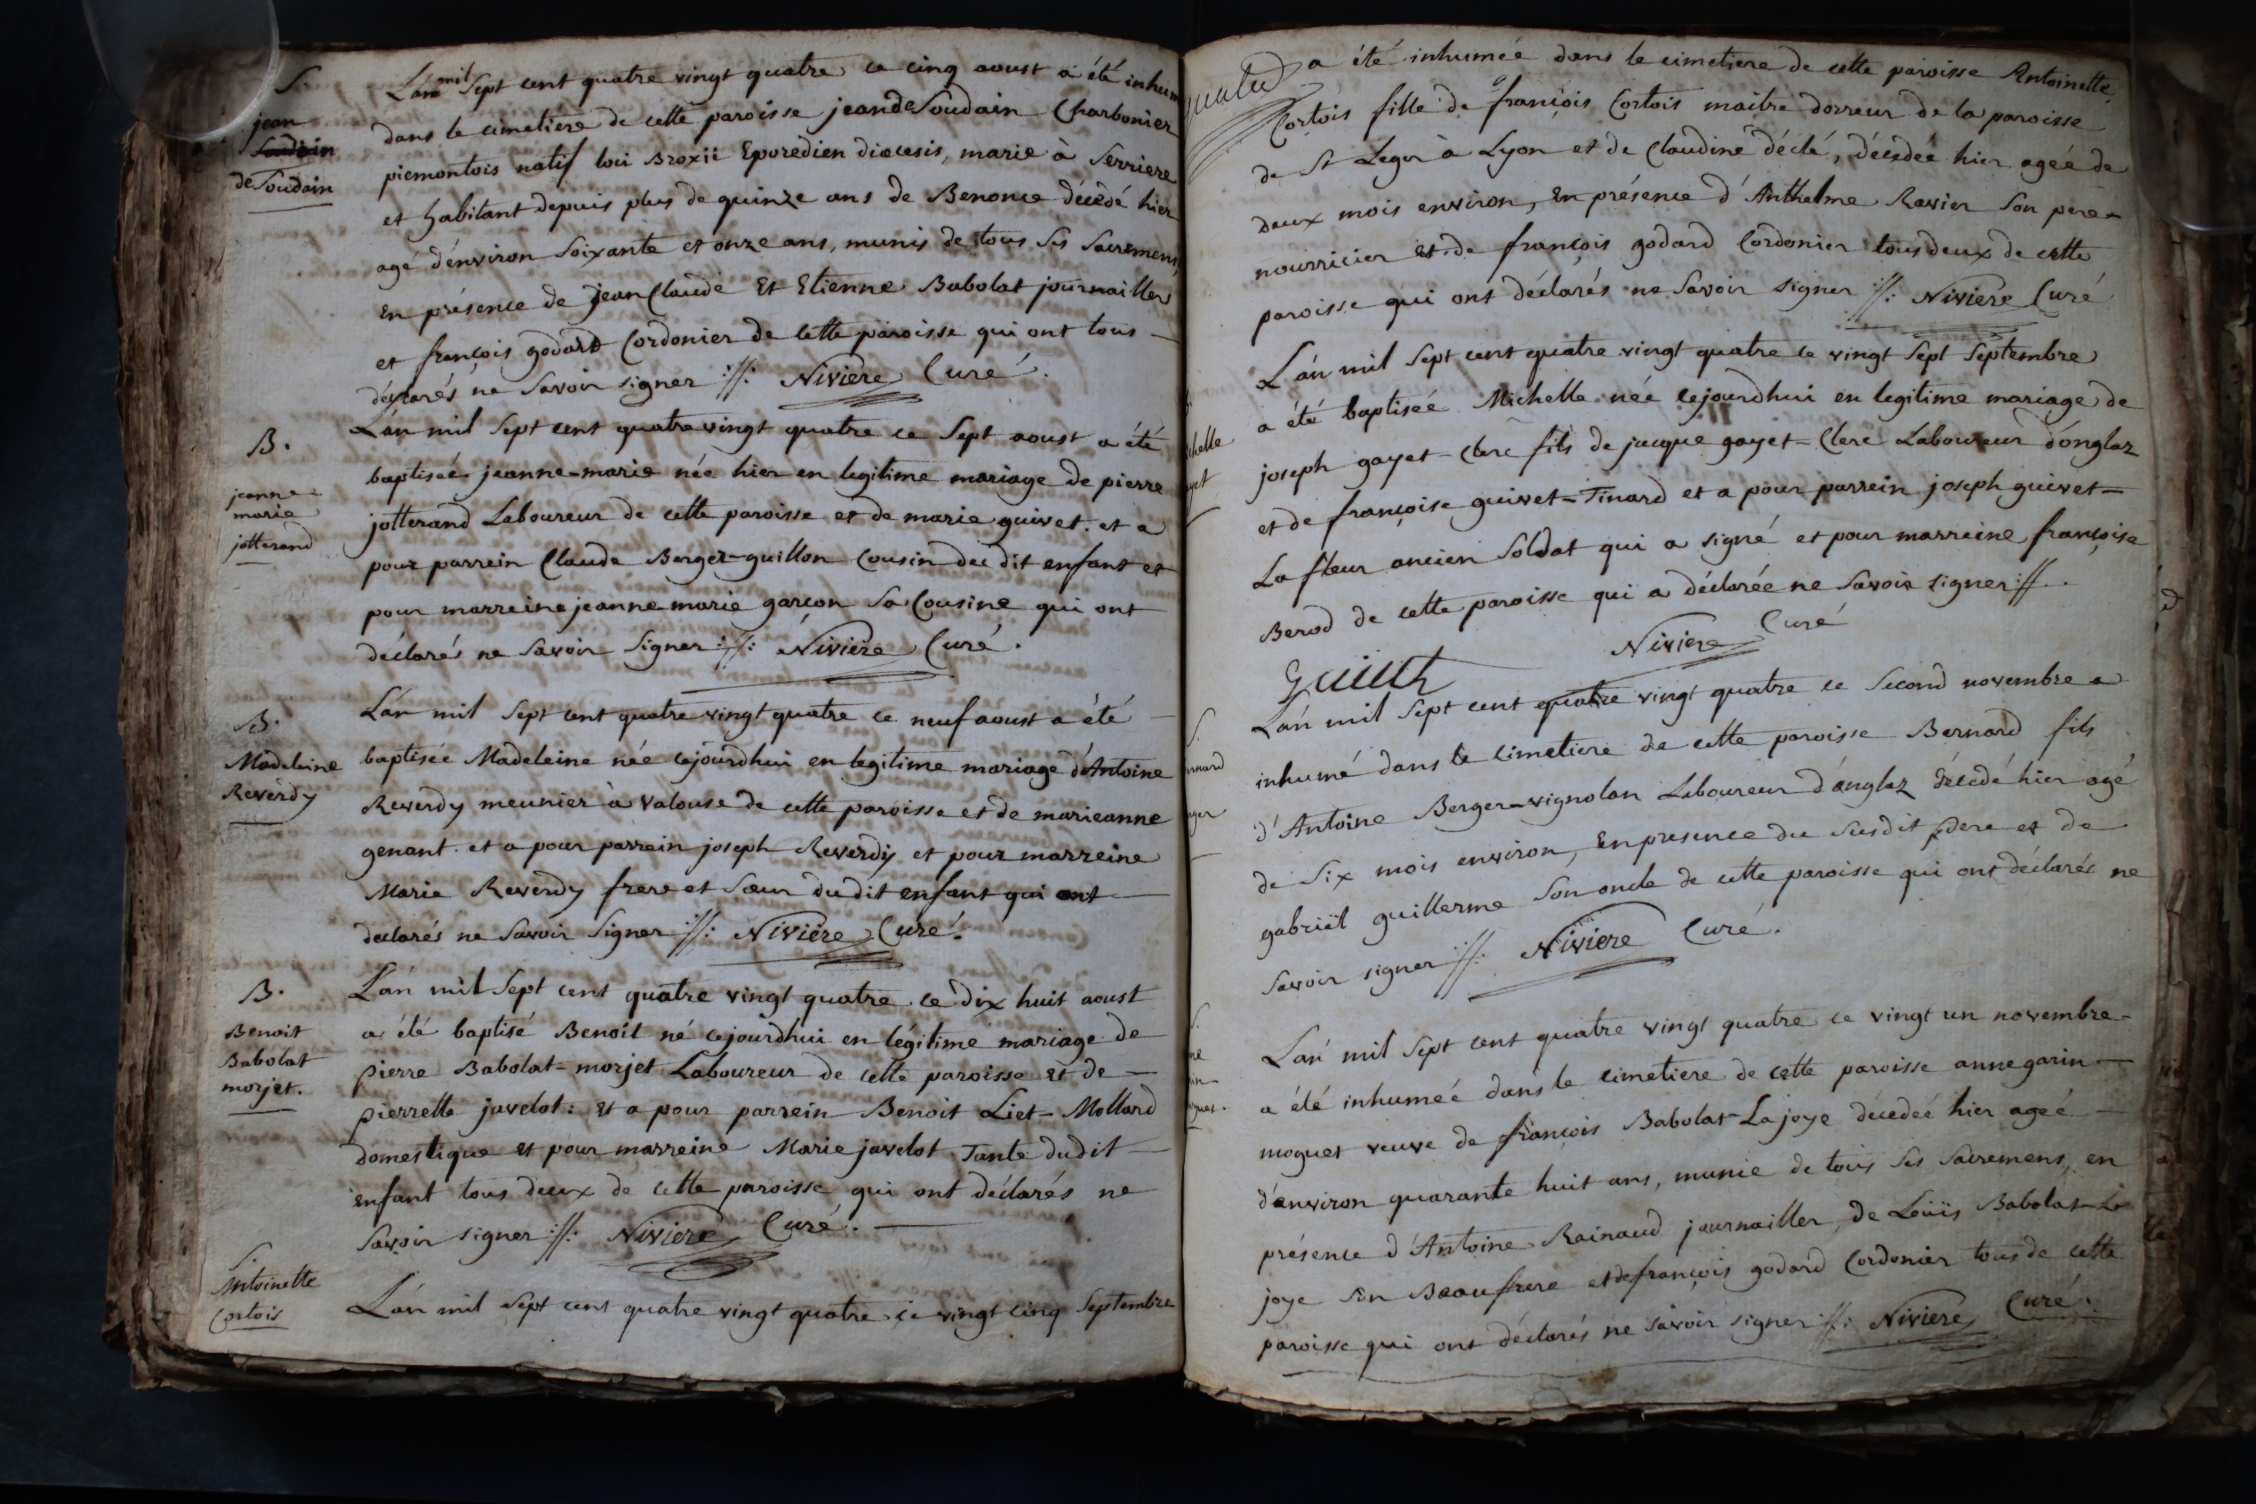 S.
jean
Soudain
deSoudain
L'an mil Sept cent quatre vingt quatre ce cinq aoust a été inhum
dans le cimetiere de cette paroisse jean de Soudain Charbonier
piemontois natif loci Broxii Eporedien diocesis, marié à Serriere
et habitant depuis plus de quinze ans de Benonce décédé hier
agé d'énviron Soixante et onze ans, munis de tous Ses Sacremens,
En présence de jean Claude Et Etienne Babolat journailler
et françois godard Cordonier de Cette paroisse qui ont tous
déclarés ne Savoir signer ://: Niviere Curé.
B.
jeanne-
marie
jotterand
L'an mil Sept cent quatre vingt quatre ce Sept aoust a été
baptiseé jeanne-marie née hier en legitime mariage de pierre
jotterand Laboureur de cette paroisse et de marie guivet. et a
pour parrein Claude Berger-guillon Cousin du dit enfant et
pour marreine jeanne marie garcon Sa Cousine qui ont
déclarés ne Savoir Signer ://: Niviere Curé.
B.
Madeleine
Reverdy
L'an mil Sept cent quatre vingt quatre ce neuf aoust a été
baptisée Madeleine née cejourdhui en legitime mariage d'Antoine
Reverdy meunier à valouse de cette paroisse et de marieanne
genant. et a pour parrein joseph Reverdy et pour marreine
Marie Reverdy frere et Sœur dudit enfant qui ont
declarés ne Savoir Signer ://: Niviere Curé.
B.
Benoit
Babolat
morjet.
L'an mil Sept cent quatre vingt quatre ce dix huit aoust
a été baptisé Benoit né cejourdhui en légitime mariage de
pierre Babolat-morjet Laboureur de cette paroisse et de
pierrette javelot: Et a pour parrein Benoit Liet-Mollard
domestique et pour marreine Marie javelot Tante dudit
enfant tous deux de cette paroisse qui ont déclarés ne
Savoir signer ://: Niviere Curé.
S.
Antoinette
Cortois
L'an mil Sept cent quatre vingt quatre ce vingt cinq Septembre
a été inhumeé dans le cimetiere de cette paroisse Antoinette
Cortois fille de françois Cortois maitre dorreur de la paroisse
de St Leger à Lyon et de Claudine déclé, décédée hier ageé de
deux mois environ, En présence d'Anthelme Ravier Son pere
nourricier et de françois godard Cordonier tous deux de cette
paroisse qui ont déclarés ne Savoir signer ://: Niviere Curé
chelle
yet
L'an mil Sept cent quatre vingt quatre ce vingt Sept Septembre
a été baptiseé Michelle née cejourdhui en legitime mariage de
joseph gayet-Clerc fils de jacque gayet-Clerc Laboureur d'onglaz
et de françoise guivet-Tinard et a pour parrein joseph guivet-
La fleur ancien Soldat qui a signé et pour marreine françoise
Berod de cette paroisse qui a déclarée ne Savoir signer ://.
Niviere Curé
Guivet
S.
nard
ger
L'an mil Sept cent quatre vingt quatre ce Second novembre a
inhumé dans le cimetiere de cette paroisse Bernard fils
d'Antoine Berger-vignolan Laboureur d'anglaz décedé hier agé
de Six mois environ, En presence du Susdit pere et de
gabriël guillerme Son oncle de cette paroisse qui ont déclarés ne
Savoir signer ://: Niviere Curé.
L'an mil Sept cent quatre vingt quatre ce vingt un novembre
a été inhumeé dans le cimetiere de cette paroisse anne garin
moguet veuve de françois Babolat-La joye décedeé hier ageé
d'environ quarante huit ans, munie de tous Ses Sacremens, en
présence d'Antoine Rainaud journailler, de Loüis Babolat-La
joye Son Beaufrere et de françois godard Cordonier tous de cette
paroisse qui ont déclarés ne Savoir signer ://: Niviere Curé.